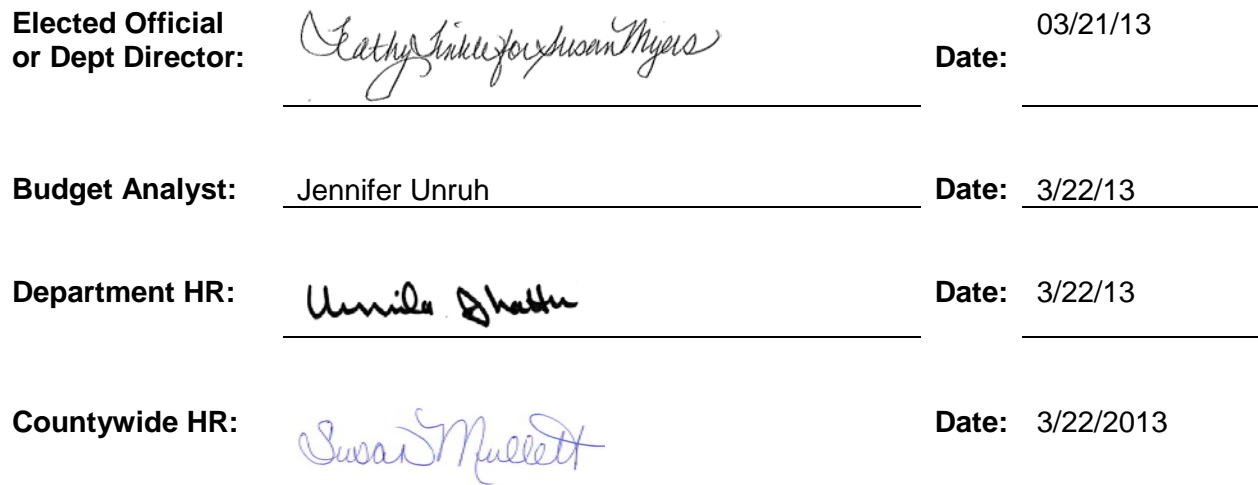 Elected Official
or Dept Director: Kathy Tinkle for Susan Myers Date: 03/21/13
Budget Analyst: Jennifer Unruh Date: 3/22/13
Department HR: Date: 3/22/13
Countywide HR: Susan Mullett Date: 3/22/2013